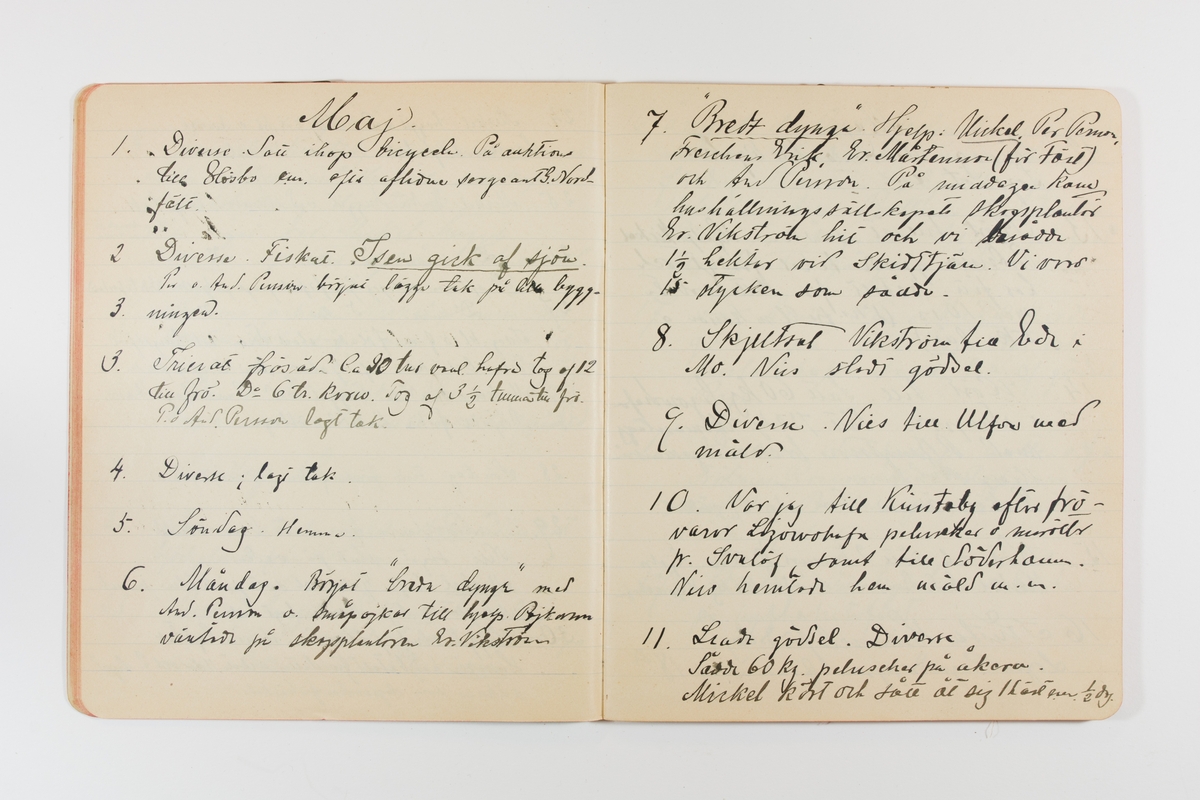 Maj.
1. Diverse. Satt ihop bicycele. På auktion
till Glösbo em. efter aflidne sergeant G. Nord-
fält.
2 Diverse. Fiskat. Isen gick af sjön.
Per o. And. Persson börjat lägga tak på bygg-
3. ningen.
3. Trierat frösäd. Ca 20 hafre tog af 12
till frö. Do 6 tr. korn. Tog af 3 ½ tunna till frö.
P. o And. Persson lagt tak.
4. Diverse; lagt tak.
5. Söndag. Hemma.
6. Måndag. Börjat "breda dynga" med
And. Persson o. småpojkar till hjelp. Pojkarna
väntade på skogsplantören Er. Vikström
7. "Bredt dynga". Hjelp: Mickel, Per Persson,
Erik, Er. Mårtensson (för Täst)
och And Persson. På middagen kom
hushållningssällskapets skogsplantör
Er. Vikström hit och vi besådde
1½ hektar vid Skidtjärn. Vi voro
15 stycken som sådde.
8. Skjutsat Vikström till Ede i
Mo. Nils slodt gödsel.
9. Diverse. Nils till Ulfva med
mäld.
10. Var jag till Kinstaby efter frö-
varor Ligowohafre peluscher o morötter
fr. Svalöf, samt till Söderhamn.
Nils hemtade hem mäld m.m.
11. Leade gödsel. Diverse
Sådde 60 kg. peluscher på åkern.
Mickel kört och sått åt sig 1 häst em. ½ dag.